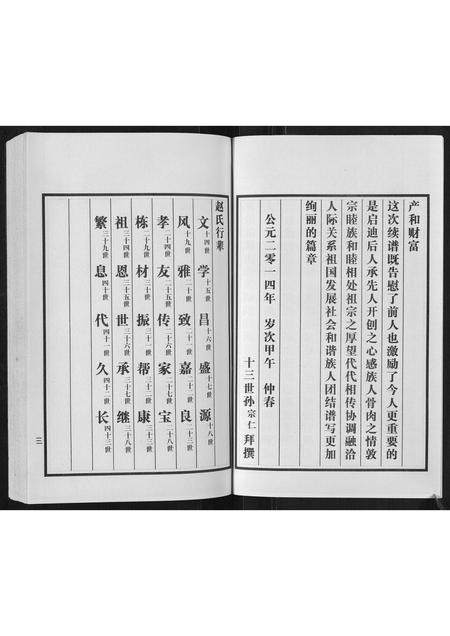 产和财富
这次续谱既告慰了前人也激励了今人更重要的
是启迪后人承先人开创之心感族人骨肉之情敦
宗睦族和睦相处祖宗之厚望代代相传协调融洽
人际关系祖国发展社会和谐族人团结谱写更加
绚丽的篇章
公元二零一四年 岁次甲午 仲春
十三世孙 宗仁 拜撰
赵氏行辈
文十四世 学十五世 昌十六世 盛十七世 源十八世
风十九世 雅二十世 致二十一世 嘉二十二世 良二十三世
孝二十四世 友二十五世 传二十六世 家二十七世 宝二十八世
栋二十九世 材三十世 振三十一世 帮三十二世 康三十三世
祖三十四世 恩三十五世 世三十六世 承三十七世 继三十八世
繁三十九世 息四十世 代四十一世 久四十二世 长四十三世
三